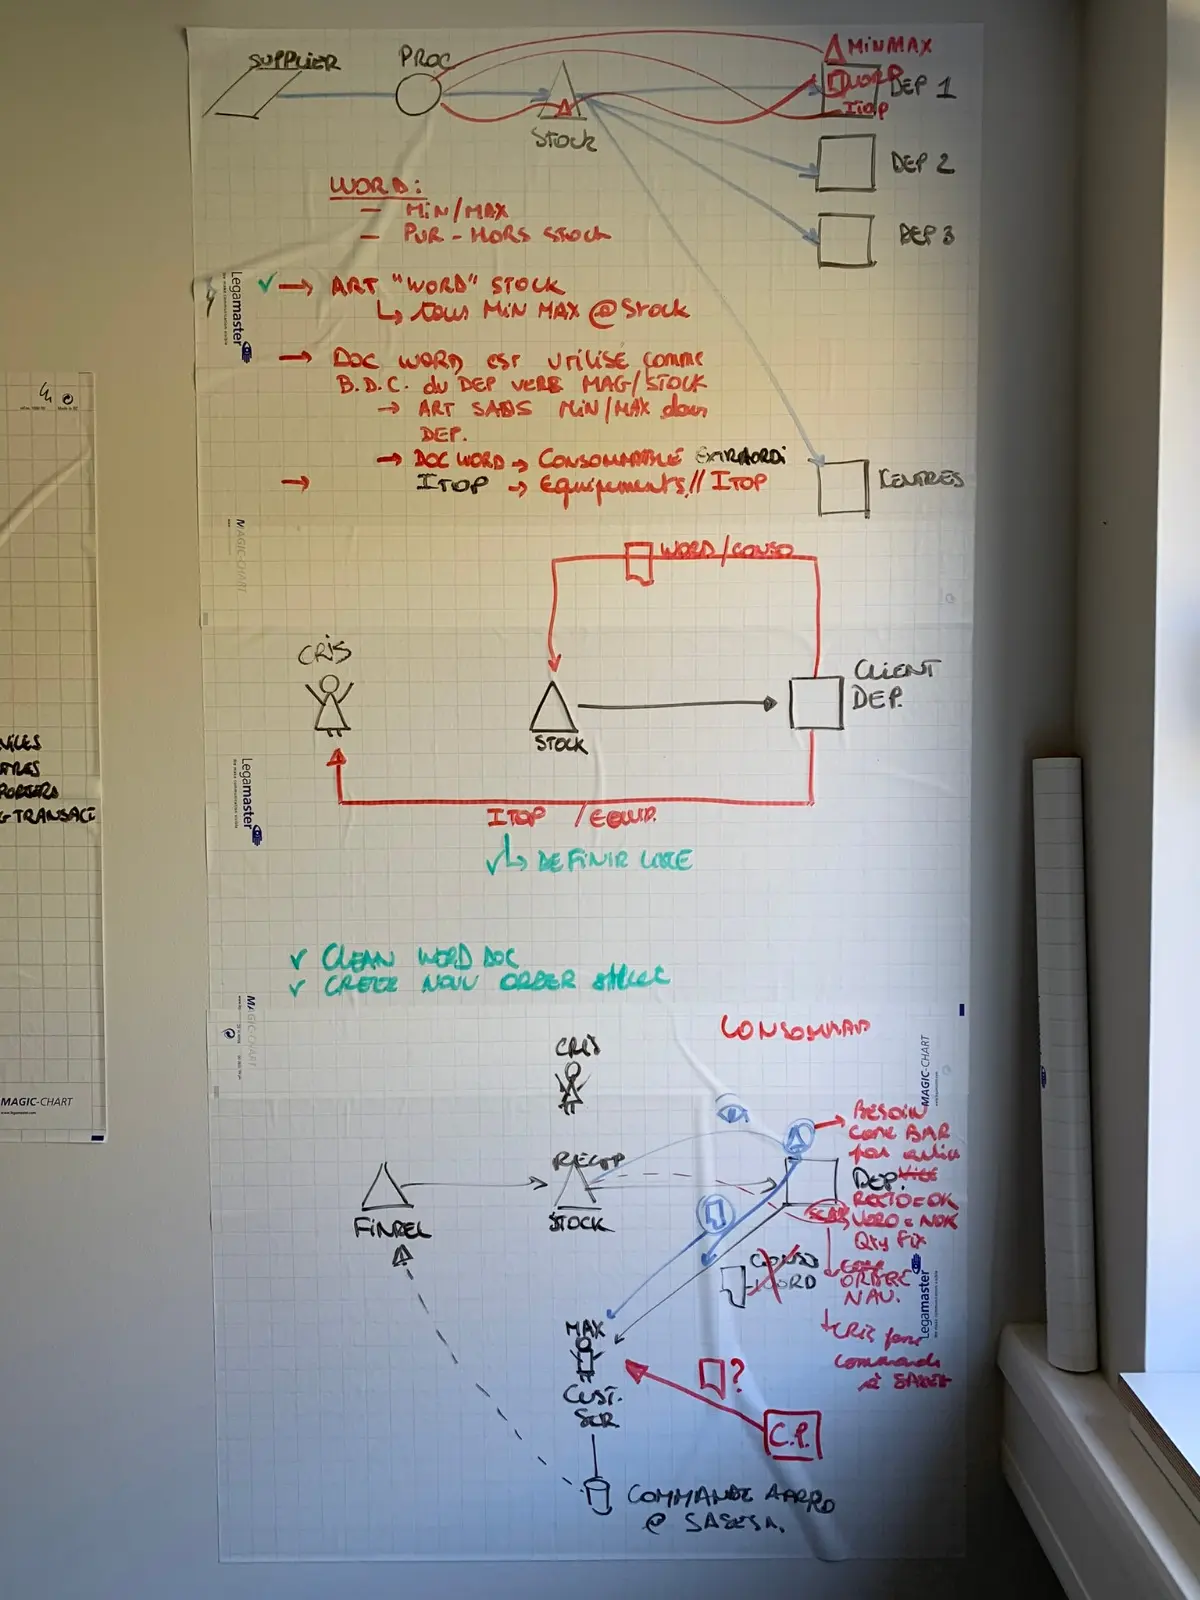 SUPPLIER
PROC
MINMAX
WORD
DEP 1
ITOP
STOCK
DEP 2
DEP 3
WORD:
— MIN/MAX
— PUR - HORS STOCK
→ ART "WORD" STOCK
↳ tous MIN MAX @ Stock
→ DOC WORD EST UTILISÉ COMME
B.D.C. du DEP VERS MAG/STOCK
→ ART SANS MIN/MAX dans
DEP.
→ DOC WORD → CONSOMMABLE EXTRAORDI
→ ITOP → Equipements // ITOP
CENTRES
WORD/CONSO
CRIS
STOCK
CLIENT
DEP.
ITOP / EQUIP.
↳ DEFINIR
✓ CLEAN WORD DOC
✓ ORDER
CRIS
RECEP
STOCK
FINREL
BESOIN
CODE BAR
par
DEP.
SCAN
RECTO = OK
VERSO = NOK
Qty Fix
CONSO
WORD
ORDRE
NAV.
CRIS pour
commande
MAX
CUST.
SER
?
C.P.
COMMANDE APPRO
@ SASESA.
Legamaster
Legamaster
Legamaster
MAGIC-CHART
MAGIC-CHART
MAGIC-CHART
MAGIC-CHART